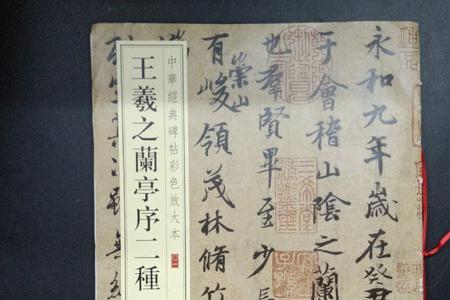 永和九年歲在癸
于會稽山陰之蘭
也羣賢畢至少長
有崇山峻領茂林脩竹
中華經典碑帖彩色放大本
王羲之蘭亭序二種
雖無